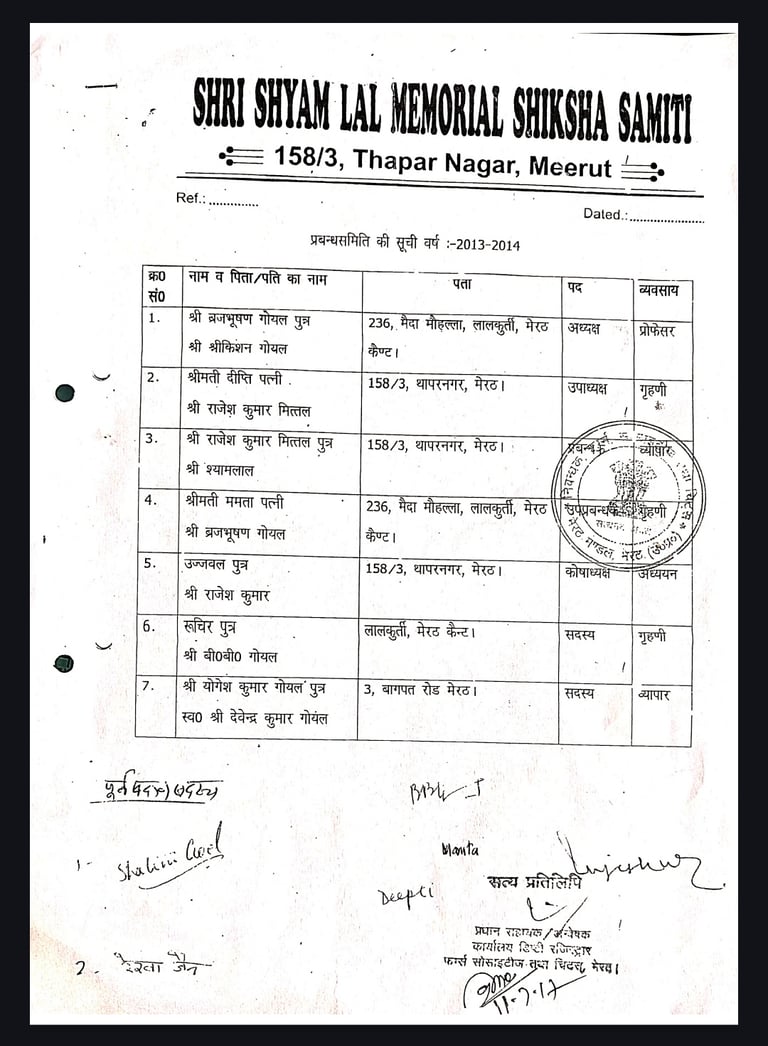 SHRI SHYAM LAL MEMORIAL SHIKSHA SAMITI
158/3, Thapar Nagar, Meerut
Ref.:.............
Dated.:......................
प्रबन्धसमिति की सूची वर्ष :-2013-2014
क्र0 सं0 नाम व पिता/पति का नाम पता पद व्यवसाय
1. श्री ब्रजभूषण गोयल पुत्र 236, मैदा मौहल्ला, लालकुर्ती, मेरठ अध्यक्ष प्रोफेसर
श्री श्रीकिशन गोयल कैण्ट।
2. श्रीमती दीप्ति पत्नी 158/3, थापरनगर, मेरठ। उपाध्यक्ष गृहणी
श्री राजेश कुमार मित्तल
3. श्री राजेश कुमार मित्तल पुत्र 158/3, थापरनगर, मेरठ। प्रबन्धक व्यापार
श्री श्यामलाल
4. श्रीमती ममता पत्नी 236, मैदा मौहल्ला, लालकुर्ती, मेरठ उपप्रबन्धक गृहणी
श्री ब्रजभूषण गोयल कैण्ट।
5. उज्जवल पुत्र 158/3, थापरनगर, मेरठ। कोषाध्यक्ष अध्ययन
श्री राजेश कुमार
6. रूचिर पुत्र लालकुर्ती, मेरठ कैन्ट। सदस्य गृहणी
श्री बी0बी0 गोयल
7. श्री योगेश कुमार गोयल पुत्र 3, बागपत रोड मेरठ। सदस्य व्यापार
स्व0 श्री देवेन्द्र कुमार गोयल
मेरठ मण्डल, मेरठ (उ०प्र०)
1- Shalini Goel
Mamta
Deepti
सत्य प्रतिलिपि
प्रधान सहायक/अन्वेषक
कार्यालय डिप्टी रजिस्ट्रार
फर्म्स सोसाइटीज तथा चिटस्, मेरठ।
11-7-17
2. रेखा जैन